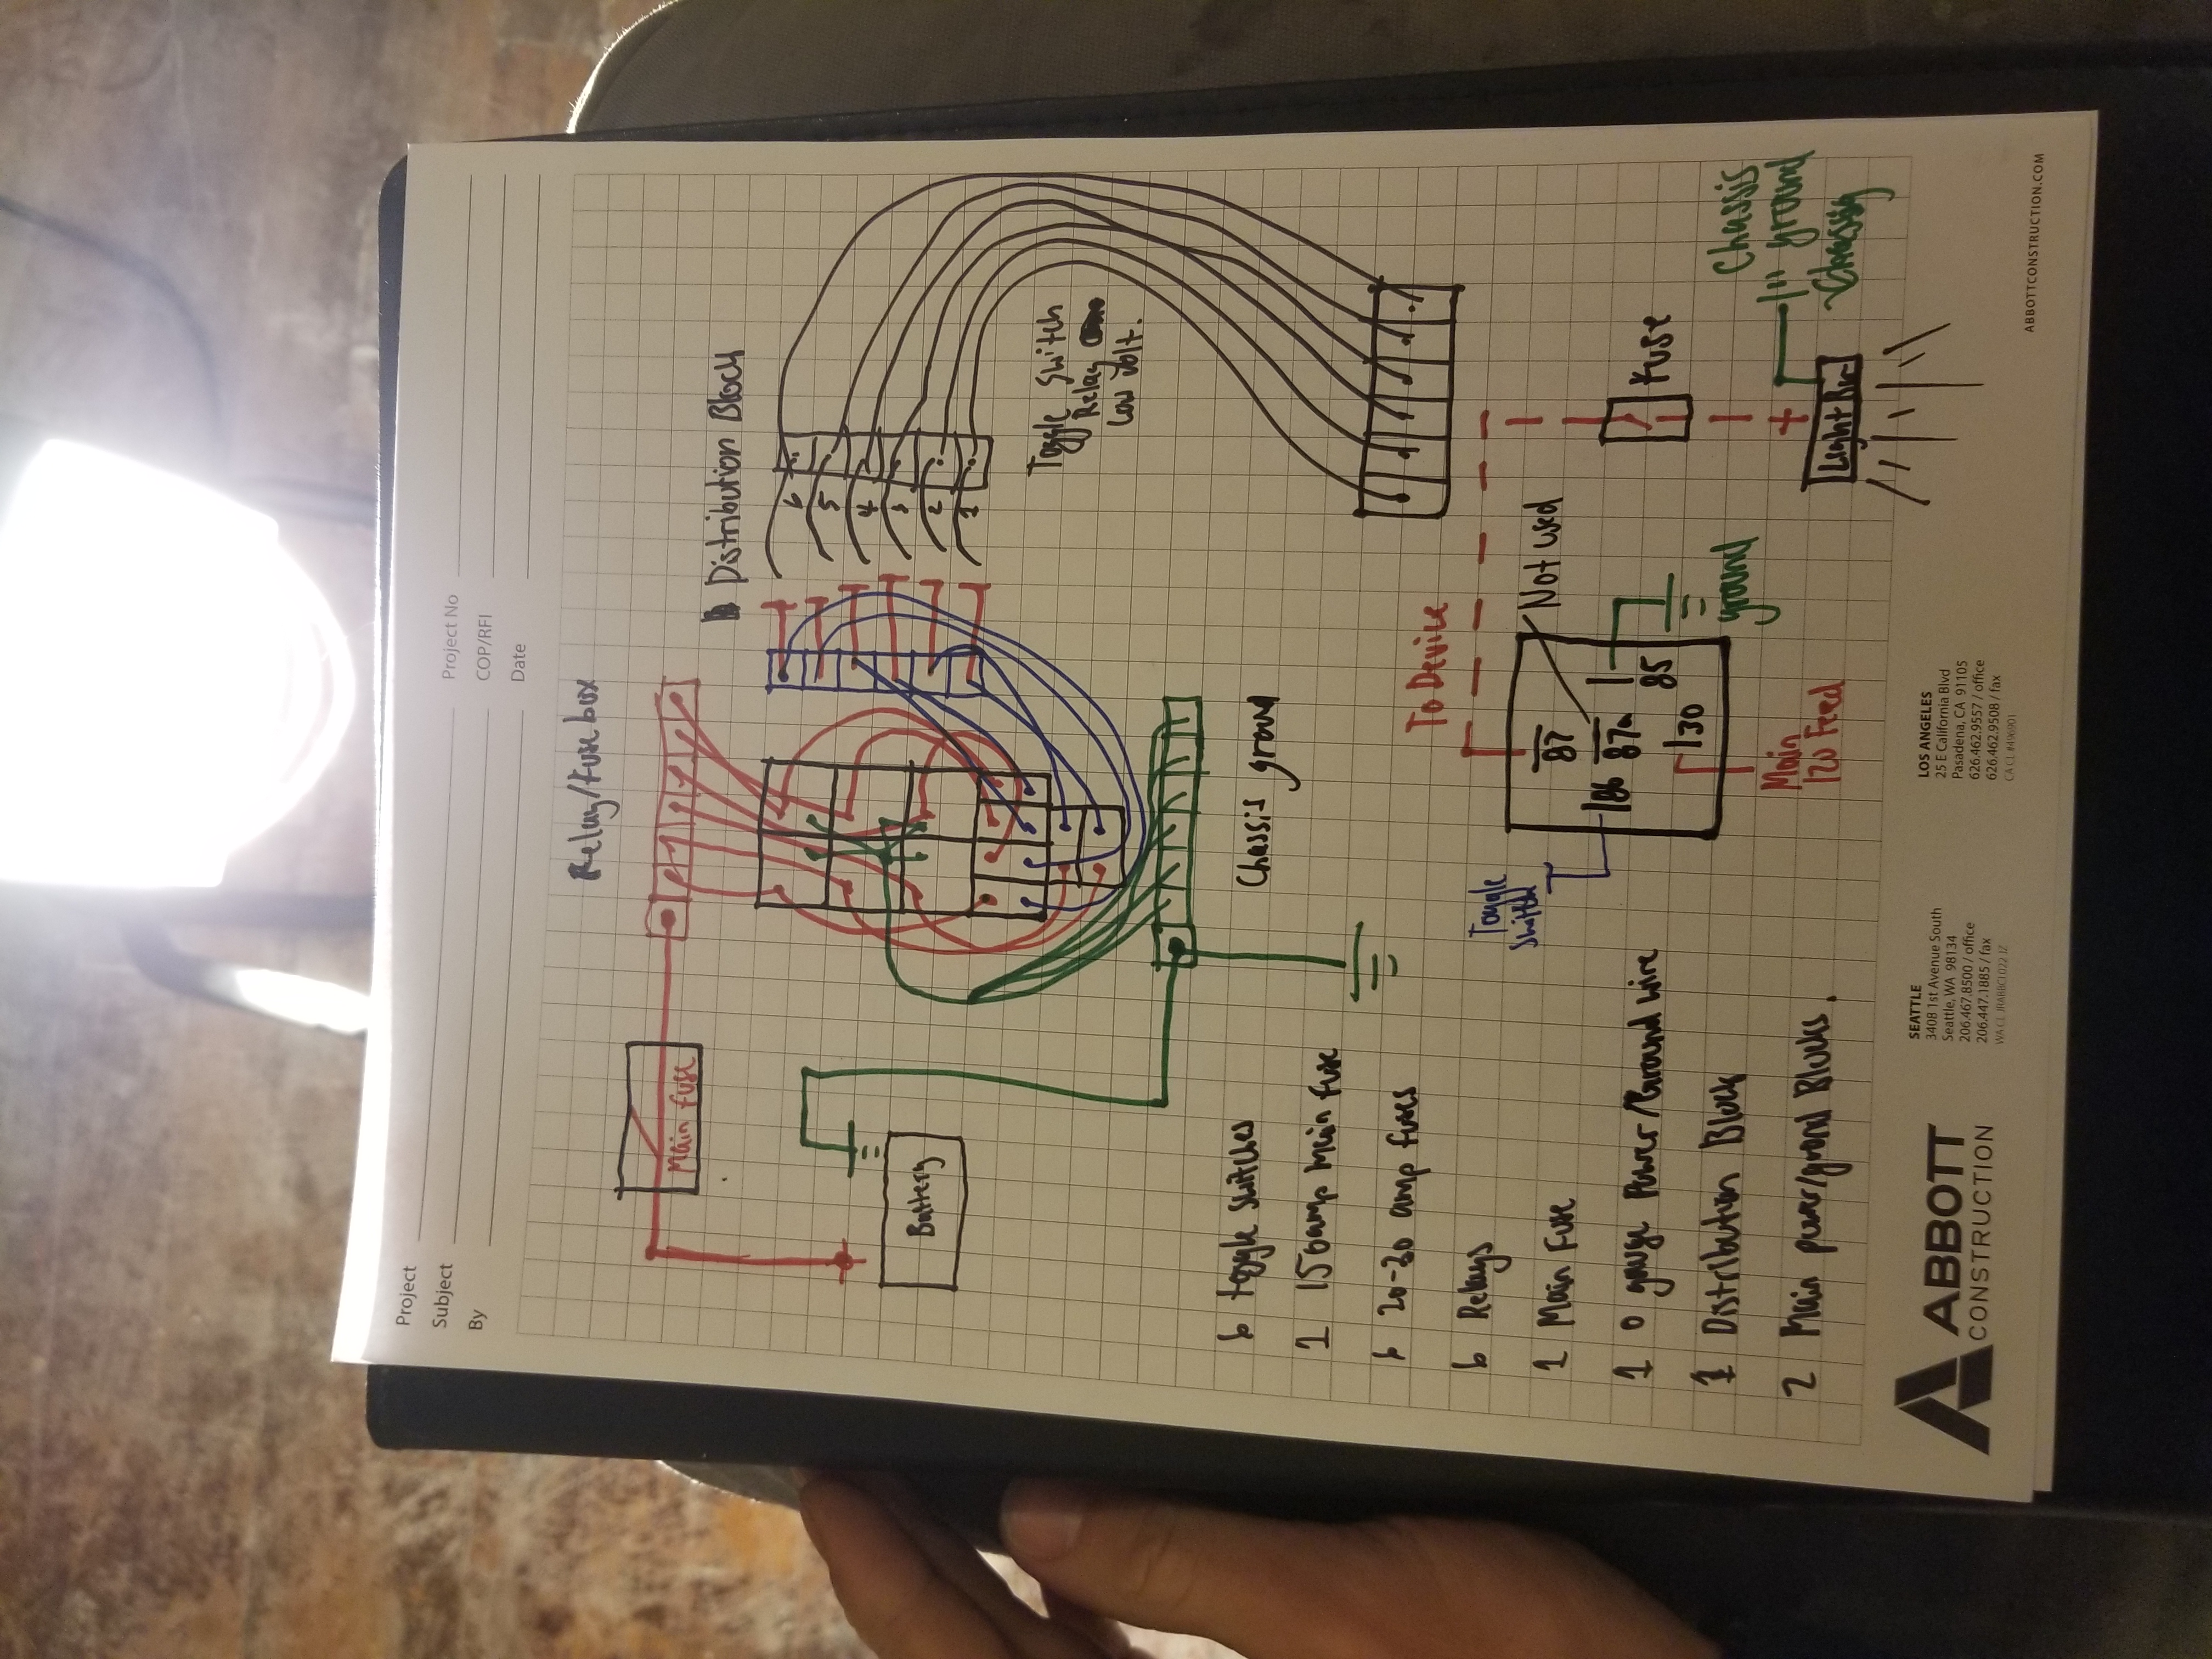 Project
Subject
By
Project No
COP/RFI
Date
Relay/Fuse box
Main fuse
Distribution Block
Battery
6
5
4
3
2
1
Toggle Switch
Relay
Low Volt.
Chassis ground
6 toggle switches
1 150amp Main fuse
6 20-30 amp fuses
6 Relays
1 Main Fuse
1 0 gauge Power/Ground wire
1 Distribution Block
2 Main power/grond Blocks.
To Device
Toggle
Switch
87
Not used
86
87a
85
30
ground
Main
12v Feed
Fuse
Chassis
ground
Chassis
Light Bar
ABBOTT
CONSTRUCTION
SEATTLE
3408 1st Avenue South
Seattle, WA 98134
206.467.8500 / office
206.447.1885 / fax
LOS ANGELES
25 E California Blvd
Pasadena, CA 91105
626.462.9557 / office
626.462.9508 / fax
CA CL #496901
ABBOTTCONSTRUCTION.COM